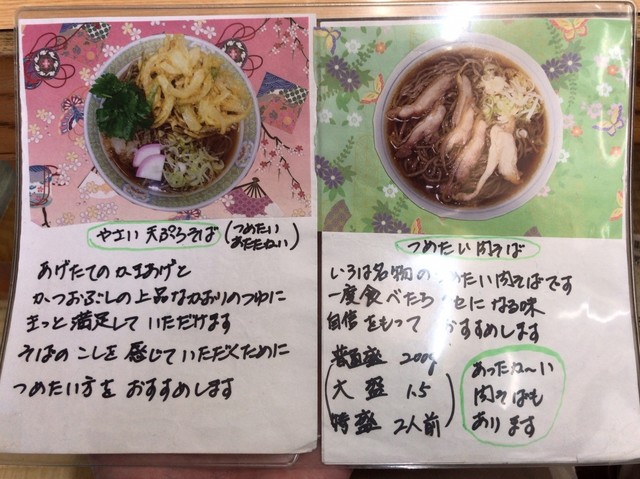 やさい 天ぷらそば (つめたい
あたたかい)
あげたてのかきあげと
かつおぶしの上品なかおりのつゆに
きっと満足していただけます
そばのこしを感じていただくために
つめたい方をおすすめします
つめたい肉そば
いろは名物の めたい肉そばです
一度食べたら セになる味
自信をもって おすすめします
普通盛 200g
大盛 1.5
特盛 2人前
あったか〜い
肉そばも
あります